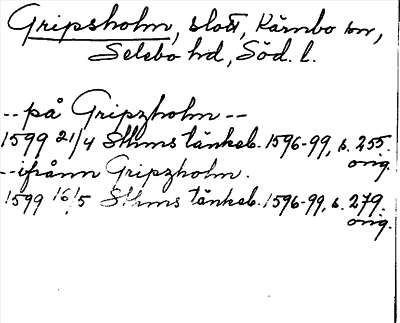 Gripsholm, slott, Kärnbo sn,
Selebo hd, Söd. l.
-- på Gripzholm --
1599 21/4 Sthms tänkeb. 1596-99, s. 255.
orig.
-- ifrånn Gripzholm.
1599 16/5 Sthms tänkeb. 1596-99, s. 279.
orig.